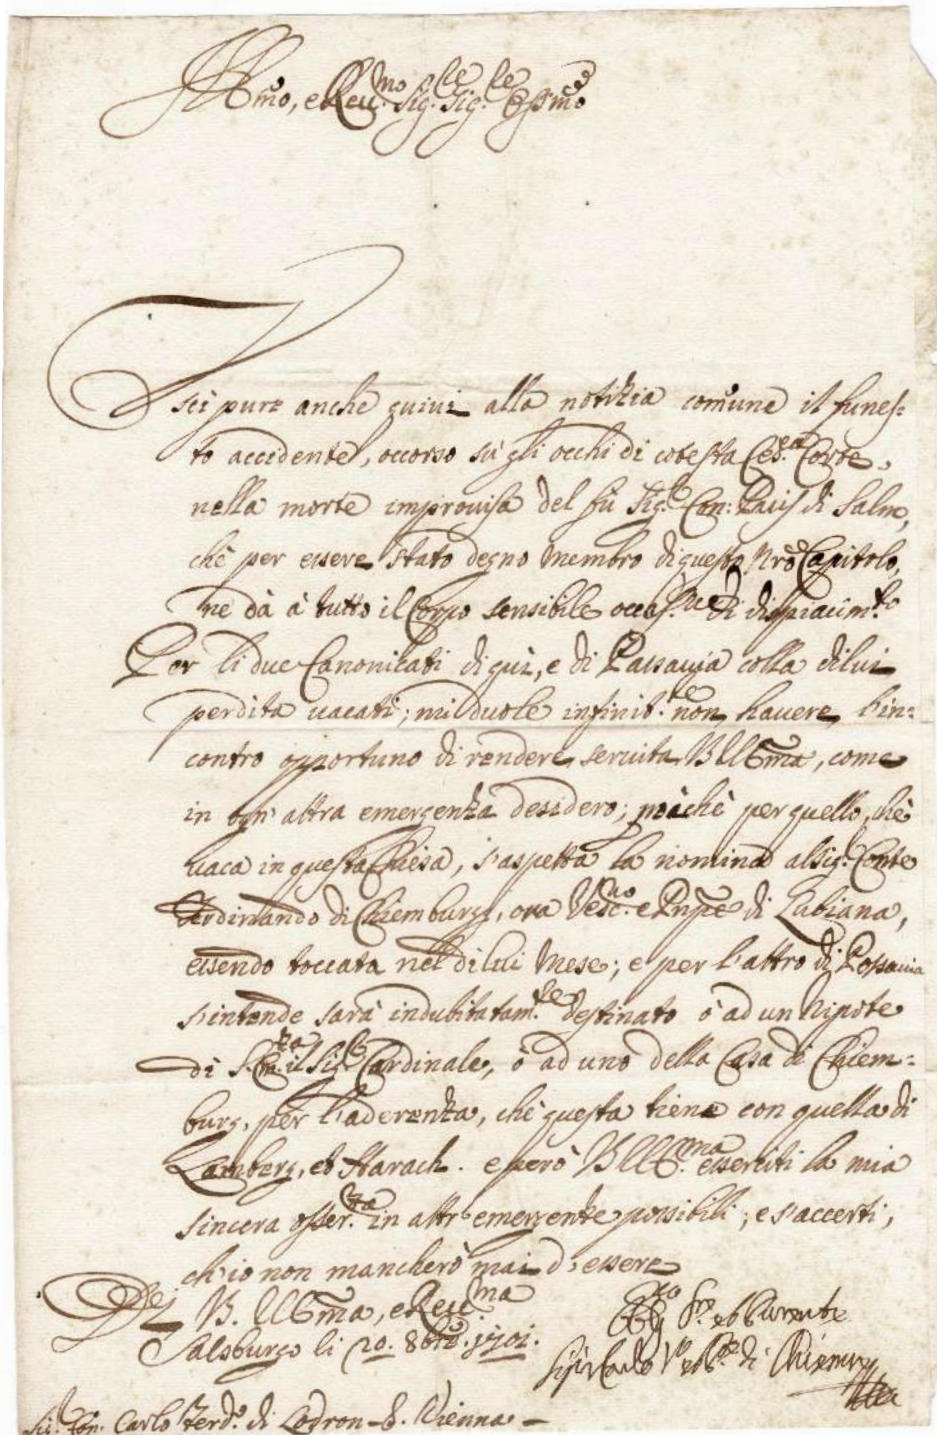 Illmo, e Reumo Sig.r Sig.re Ossmo
Uscì pure anche quivi alla notitia comune il funes:
to accidente, occorso sù gli occhi di cotesta Ces.a Corte,
nella morte improuisa del fù Sig.r Con: di Salm,
che per essere stato degno membro di questo nrô Capitolo,
ne dà à tutto il Corpo sensibile occas.ne di dispiacim.to
Per li due Canonicati di quì, e di Passavia colla di lui
perdita uacati; mi duole infinit.te non hauere l'in:
contro opportuno di rendere seruita V Illma, come
in ogn' altra emergenza desidero; poiche per quello, che
uaca in questa Chiesa, s'aspetta la nomina al Sig.r Conte
Ferdinando di Chiemburg, ora Vesc.uo e Prnpe di Lubiana,
essendo toccata nel di lui Mese; e per l'altro di Passavia
s'intende sarà indubitatam.te destinato ò ad un Nipote
di S. Em.za il Sig.r Cardinale, ò ad uno della Casa di Chiem:
burg, per l'aderenza, che questa tiene con quella di
Lamberg, et Harach. e però V Ill.ma esserciti la mia
sincera osser.za in altr' emergenze possibili; e s'accerti,
ch'io non mancherò mai d'essere
Di V. Illma, e Reuma
Salsburgo li 20. 8bre. 1701.
Obl.mo Sr. et Parente
Sigis. Carlo Vo di Chiemsee
Sig.r Con. Carlo Ferd.o di Lodron - Vienna -